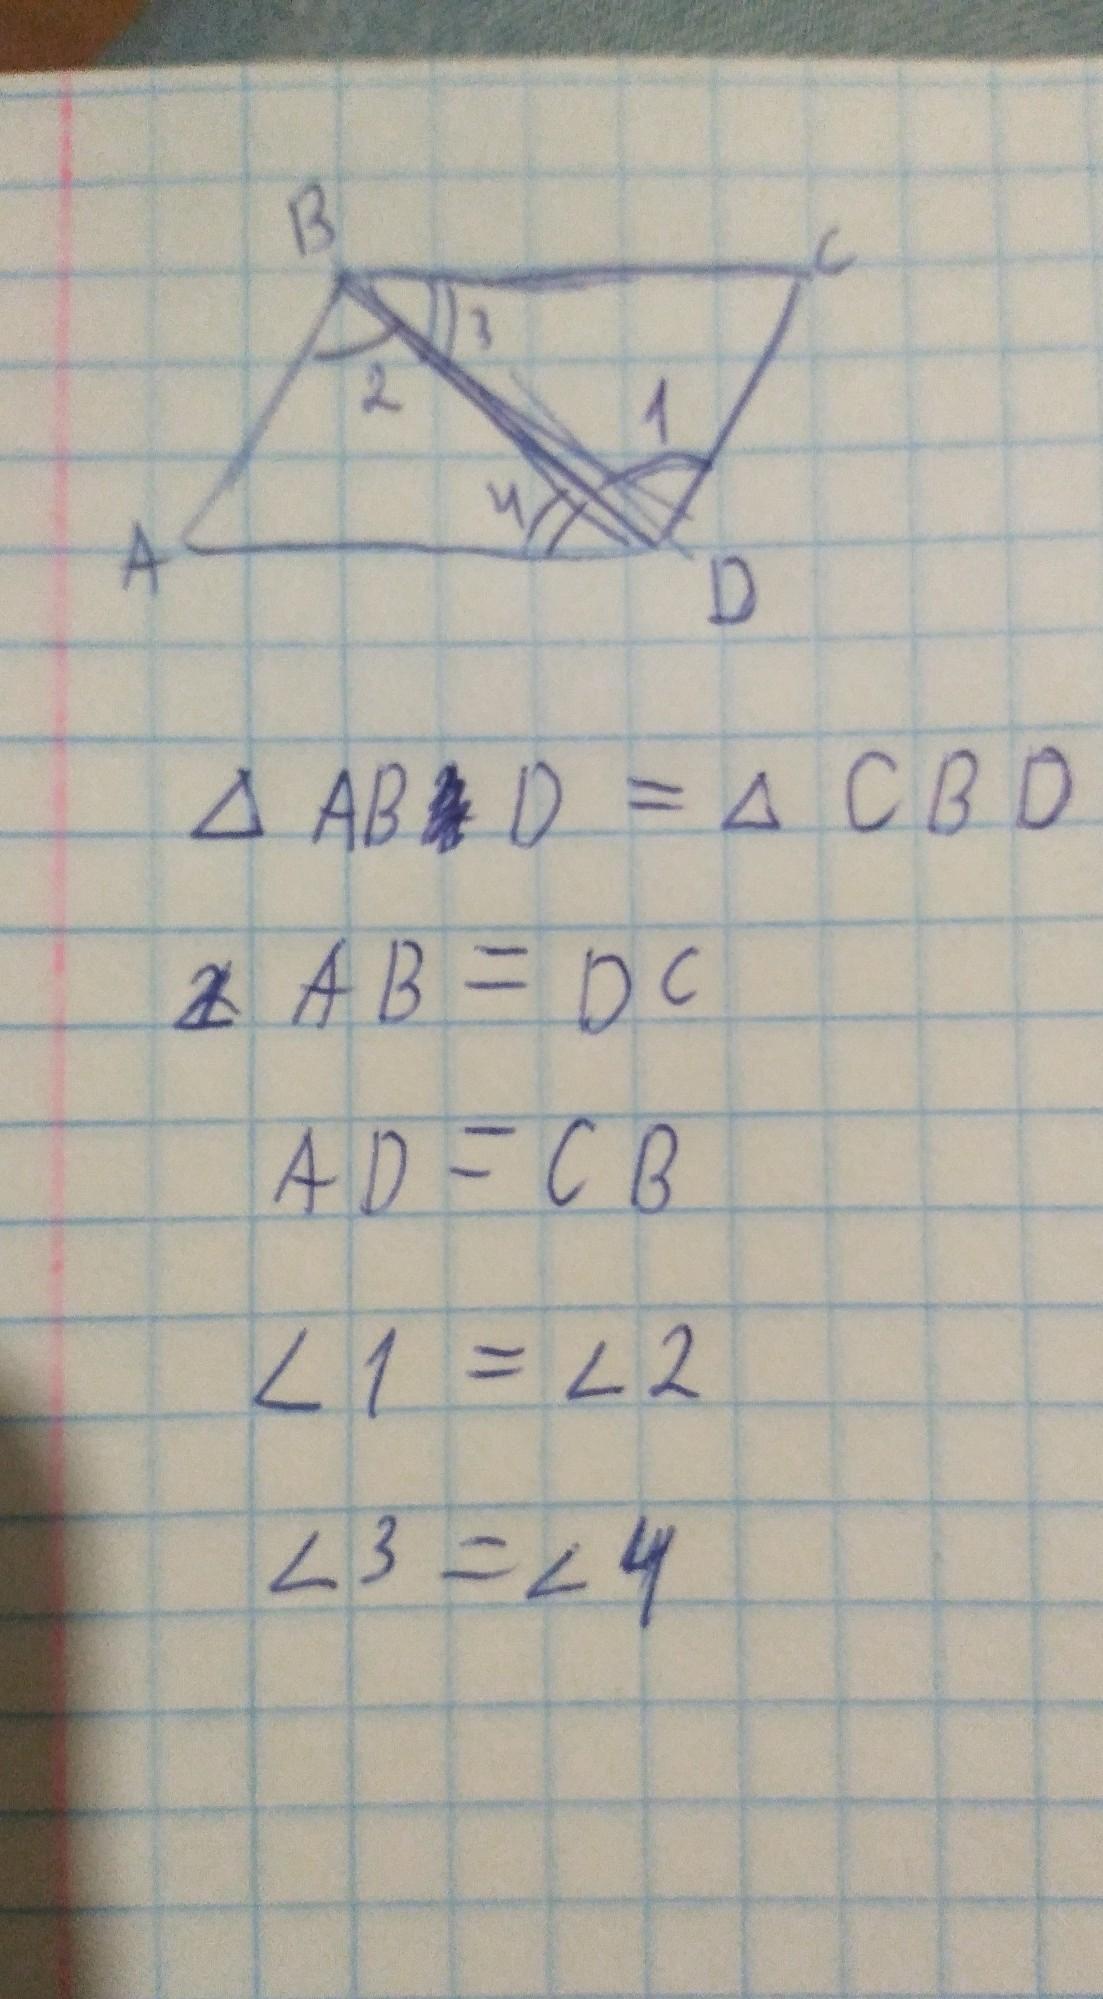 B
C
3
2
1
4
A
D
Δ ABD = Δ CBD
AB = DC
AD = CB
∠1 = ∠2
∠3 = ∠4